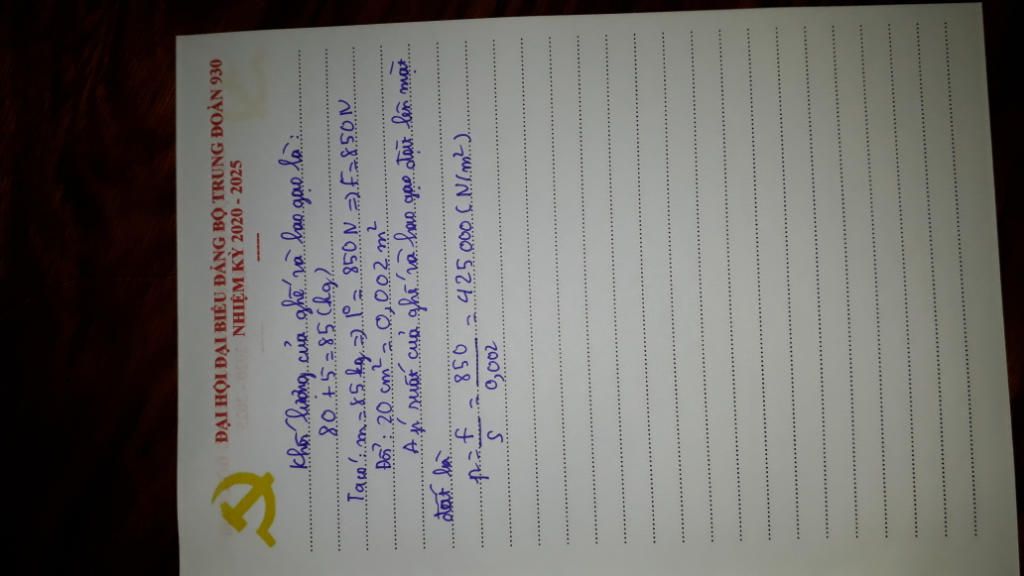 ĐẠI HỘI ĐẠI BIỂU ĐẢNG BỘ TRUNG ĐOÀN 930
NHIỆM KỲ 2020 - 2025
Khối lượng của ghế và bao gạo là:
80 + 5 = 85 (kg)
Ta có: m = 85 kg => P = 850 N => F = 850N
Đổi: 20 cm² = 0,002 m²
Áp suất của ghế và bao gạo đặt lên mặt
đất là
p = F/S = 850/0,002 = 425.000 (N/m²)